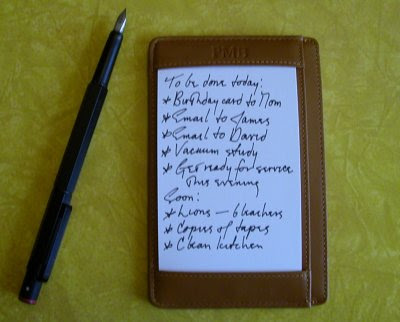 PMB
To be done today:
* Birthday card to Mom
* Email to James
* Email to David
* Vacuum study
* Get ready for service
This evening
Soon:
* Lions — bleachers
* Copies of tapes
* Clean kitchen